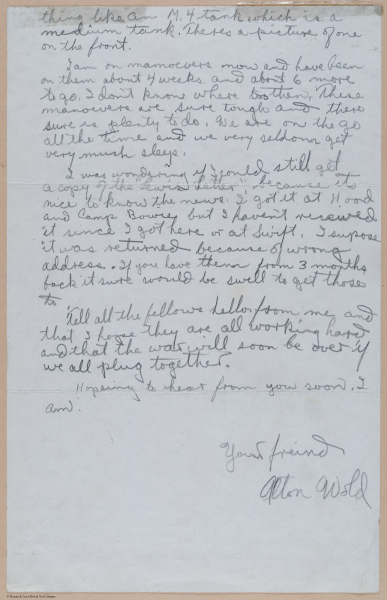 thing like an M.4 tank which is a
medium tank. Theres a picture of one
on the front.
I am on manoevers now and have been
on them about 4 weeks and about 6 more
to go. I don't know where then, These
manoevers are sure tough and there
sure is plenty to do. We are on the go
all the time and we very seldom get
very much sleep.
I was wondering if I could still get
a copy of the "News Letter", because its
nice to know the news. I got it at Hood
and Camp Bowey but I haven't received
it since I got here or at Swift. I supose
it was returned because of wrong
address. If you have them from 3 months
back it sure would be swell to get those
to.
Tell all the fellows hello from me and
that I hope they are all working hard
and that the war will soon be over if
we all plug together.
Hopeing to hear from you soon. I
am.
Your freind
Alton Wold